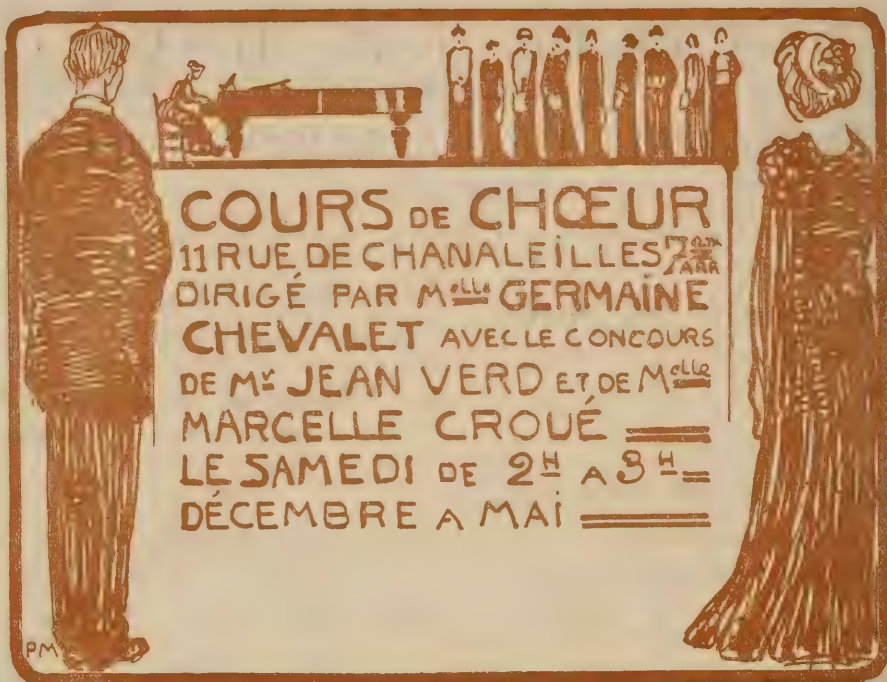 COURS DE CHŒUR
11 RUE DE CHANALEILLES 7ÈME ARR
DIRIGÉ PAR Melle GERMAINE
CHEVALET AVEC LE CONCOURS
DE Mr JEAN VERD ET DE Melle
MARCELLE CROUÉ
LE SAMEDI DE 2H A 3H
DÉCEMBRE A MAI
PM